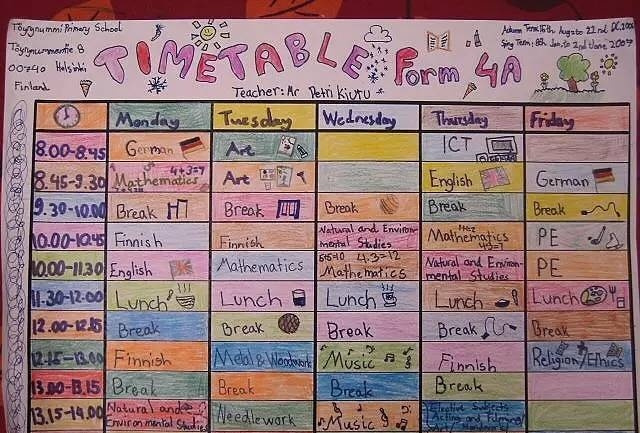 Töyrynummi Primary School
Töyrynummentie 8
00740 Helsinki
Finland
TIMETABLE Form 4A
Autumn Term: 16th Aug. to 22nd
Spring Term: 8th Jan. to 2nd June 2007
Teacher: Mr Petri Kiutu
Monday Tuesday Wednesday Thursday Friday
8.00-8.45 German Art ICT
8.45-9.30 Mathematics 4+3=7 Art English German
9.30-10.00 Break Break Break Break Break
10.00-10.45 Finnish Finnish Natural and Environ- Mathematics PE
mental Studies
10.00-11.30 English Mathematics 4.3=12 Natural and Environ- PE
Mathematics mental Studies
11.30-12.00 Lunch Lunch Lunch Lunch Lunch
12.00-12.15 Break Break Break Break Break
12.15-13.00 Finnish Metal & Woodwork Music Finnish Religion/Ethics
13.00-13.15 Break Break Break Break
13.15-14.00 Natural and Needlework Music Elective Subjects
Environmental Studies Acting and